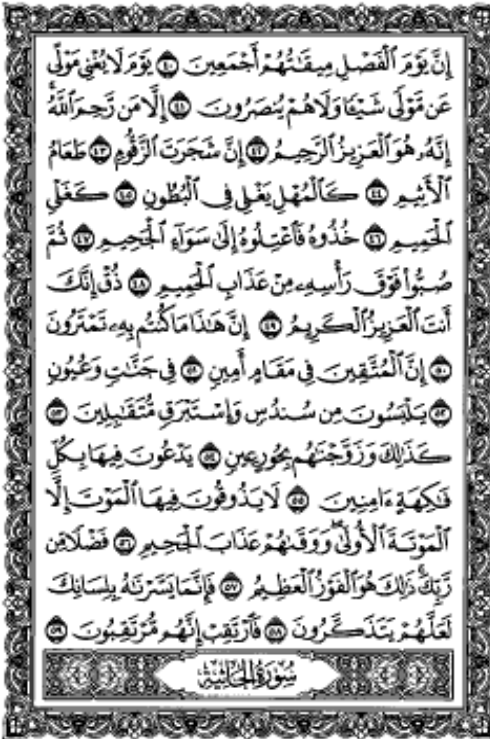 إِنَّ يَوْمَ ٱلْفَصْلِ مِيقَٰتُهُمْ أَجْمَعِينَ ٤٠ يَوْمَ لَا يُغْنِى مَوْلًى
عَن مَّوْلًى شَيْـًٔا وَلَا هُمْ يُنصَرُونَ ٤١ إِلَّا مَن رَّحِمَ ٱللَّهُ ۚ
إِنَّهُۥ هُوَ ٱلْعَزِيزُ ٱلرَّحِيمُ ٤٢ إِنَّ شَجَرَتَ ٱلزَّقُّومِ ٤٣ طَعَامُ
ٱلْأَثِيمِ ٤٤ كَٱلْمُهْلِ يَغْلِى فِى ٱلْبُطُونِ ٤٥ كَغَلْىِ
ٱلْحَمِيمِ ٤٦ خُذُوهُ فَٱعْتِلُوهُ إِلَىٰ سَوَآءِ ٱلْجَحِيمِ ٤٧ ثُمَّ
صُبُّوا۟ فَوْقَ رَأْسِهِۦ مِنْ عَذَابِ ٱلْحَمِيمِ ٤٨ ذُقْ إِنَّكَ
أَنتَ ٱلْعَزِيزُ ٱلْكَرِيمُ ٤٩ إِنَّ هَٰذَا مَا كُنتُم بِهِۦ تَمْتَرُونَ
٥٠ إِنَّ ٱلْمُتَّقِينَ فِى مَقَامٍ أَمِينٍ ٥١ فِى جَنَّٰتٍ وَعُيُونٍ
٥٢ يَلْبَسُونَ مِن سُندُسٍ وَإِسْتَبْرَقٍ مُّتَقَٰبِلِينَ ٥٣
كَذَٰلِكَ وَزَوَّجْنَٰهُم بِحُورٍ عِينٍ ٥٤ يَدْعُونَ فِيهَا بِكُلِّ
فَٰكِهَةٍ ءَامِنِينَ ٥٥ لَا يَذُوقُونَ فِيهَا ٱلْمَوْتَ إِلَّا
ٱلْمَوْتَةَ ٱلْأُولَىٰ ۖ وَوَقَىٰهُمْ عَذَابَ ٱلْجَحِيمِ ٥٦ فَضْلًا مِّن
رَّبِّكَ ۚ ذَٰلِكَ هُوَ ٱلْفَوْزُ ٱلْعَظِيمُ ٥٧ فَإِنَّمَا يَسَّرْنَٰهُ بِلِسَانِكَ
لَعَلَّهُمْ يَتَذَكَّرُونَ ٥٨ فَٱرْتَقِبْ إِنَّهُم مُّرْتَقِبُونَ ٥٩
سُورَةُ الجَاثِيَةِ